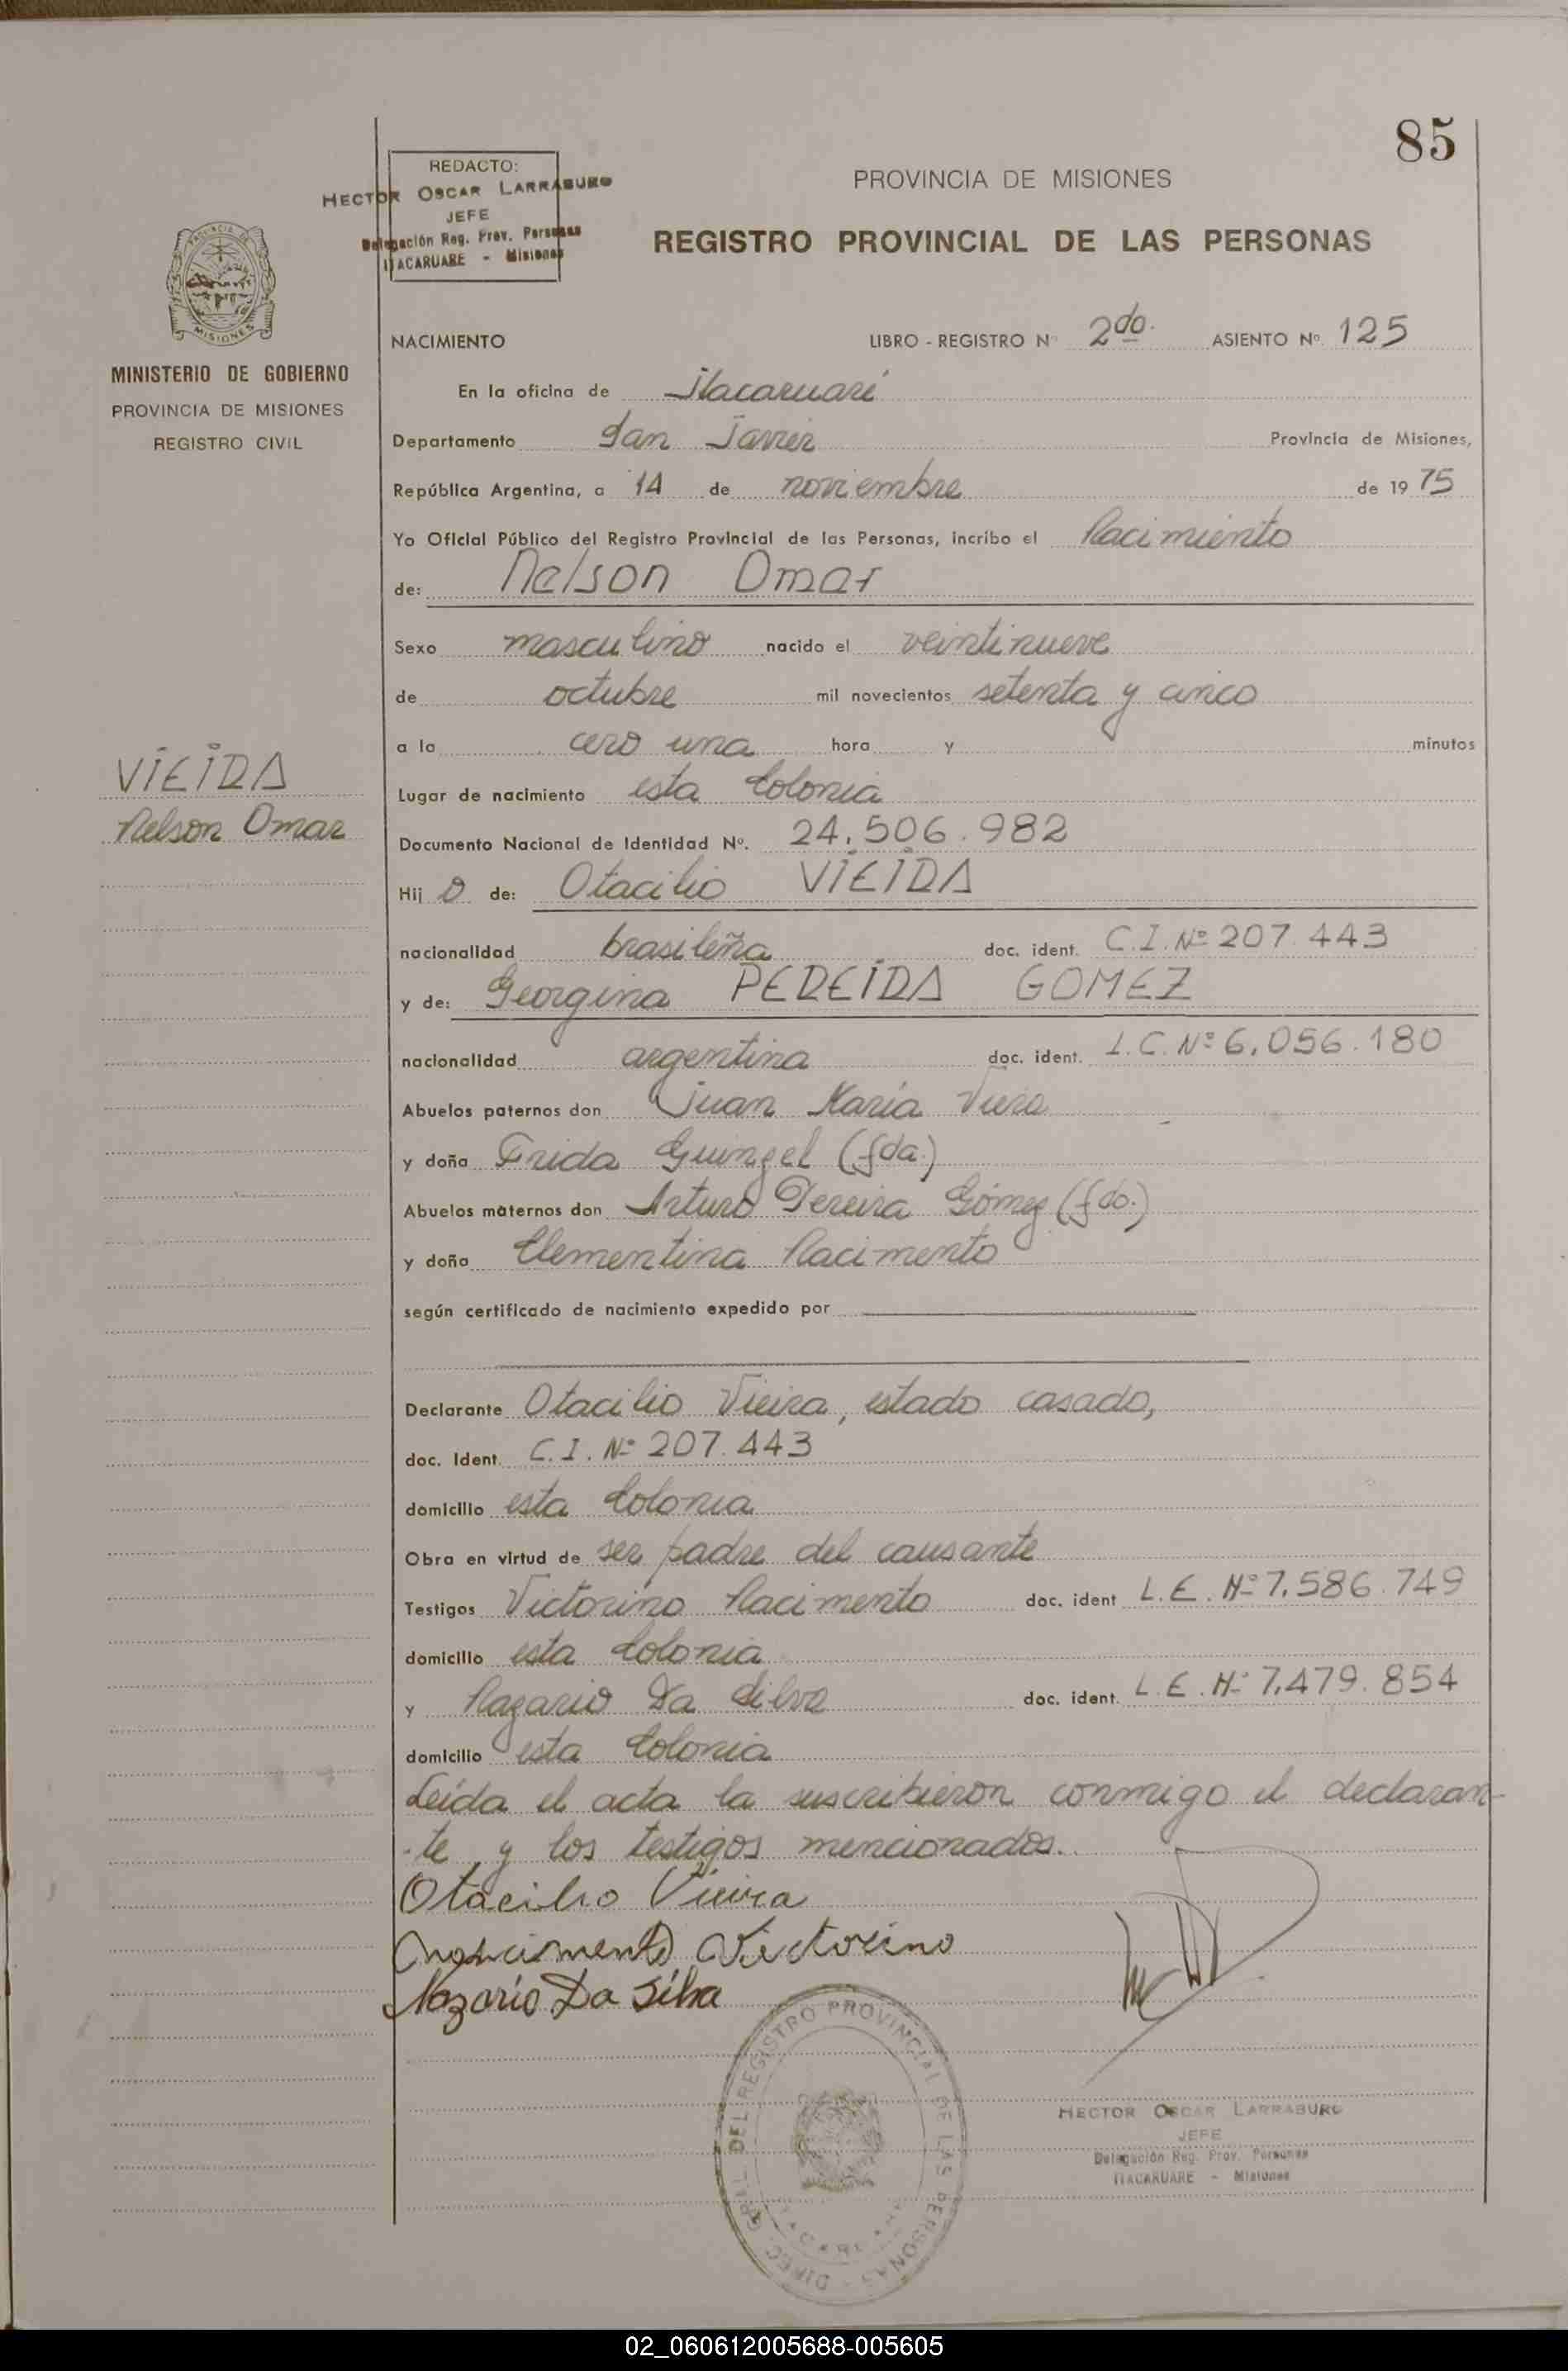 85
REDACTO:
HECTOR OSCAR LARRABURO
JEFE
Delegación Reg. Prov. Personas
ITACARUARE - Misiones
PROVINCIA DE MISIONES
REGISTRO PROVINCIAL DE LAS PERSONAS
MISIONES
MINISTERIO DE GOBIERNO
PROVINCIA DE MISIONES
REGISTRO CIVIL
NACIMIENTO LIBRO - REGISTRO Nº 2do. ASIENTO Nº 125
En la oficina de Itacaruaré
Departamento San Javier Provincia de Misiones,
República Argentina, a 14 de noviembre de 1975
Yo Oficial Público del Registro Provincial de las Personas, incribo el Nacimiento
de: Nelson Omar
Sexo masculino nacido el veintinueve
de octubre mil novecientos setenta y cinco
a la cero una hora y minutos
VIEIRA
Nelson Omar
Lugar de nacimiento esta Colonia
Documento Nacional de Identidad Nº. 24.506.982
Hijo de: Otacilio VIEIRA
nacionalidad brasileña doc. ident. C.I. Nº 207.443
y de: Georgina PEREIRA GOMEZ
nacionalidad argentina doc. ident. L.C. Nº 6.056.180
Abuelos paternos don Juan María Viera
y doña Frida Guingel (fda.)
Abuelos maternos don Arturo Pereira Gómez (fdo.)
y doña Clementina Nacimento
según certificado de nacimiento expedido por
Declarante Otacilio Vieira, estado casado,
doc. Ident. C.I. Nº 207.443
domicilio esta Colonia
Obra en virtud de ser padre del causante
Testigos Victorino Nacimento doc. ident L.E. Nº 7.586.749
domicilio esta Colonia
y Nazario Da Silva doc. ident. L.E. Nº 7.479.854
domicilio esta Colonia
Leída el acta la suscribieron conmigo el declaran-
-te y los testigos mencionados.
Otacilio Vieira
Nascimento Victorino
Nazario Da Silva
DIREC. GRAL. DEL REGISTRO PROVINCIAL DE LAS PERSONAS
ITACARUARE
HECTOR OSCAR LARRABURO
JEFE
Delegación Reg. Prov. Personas
ITACARUARE - Misiones
02_060612005688-005605